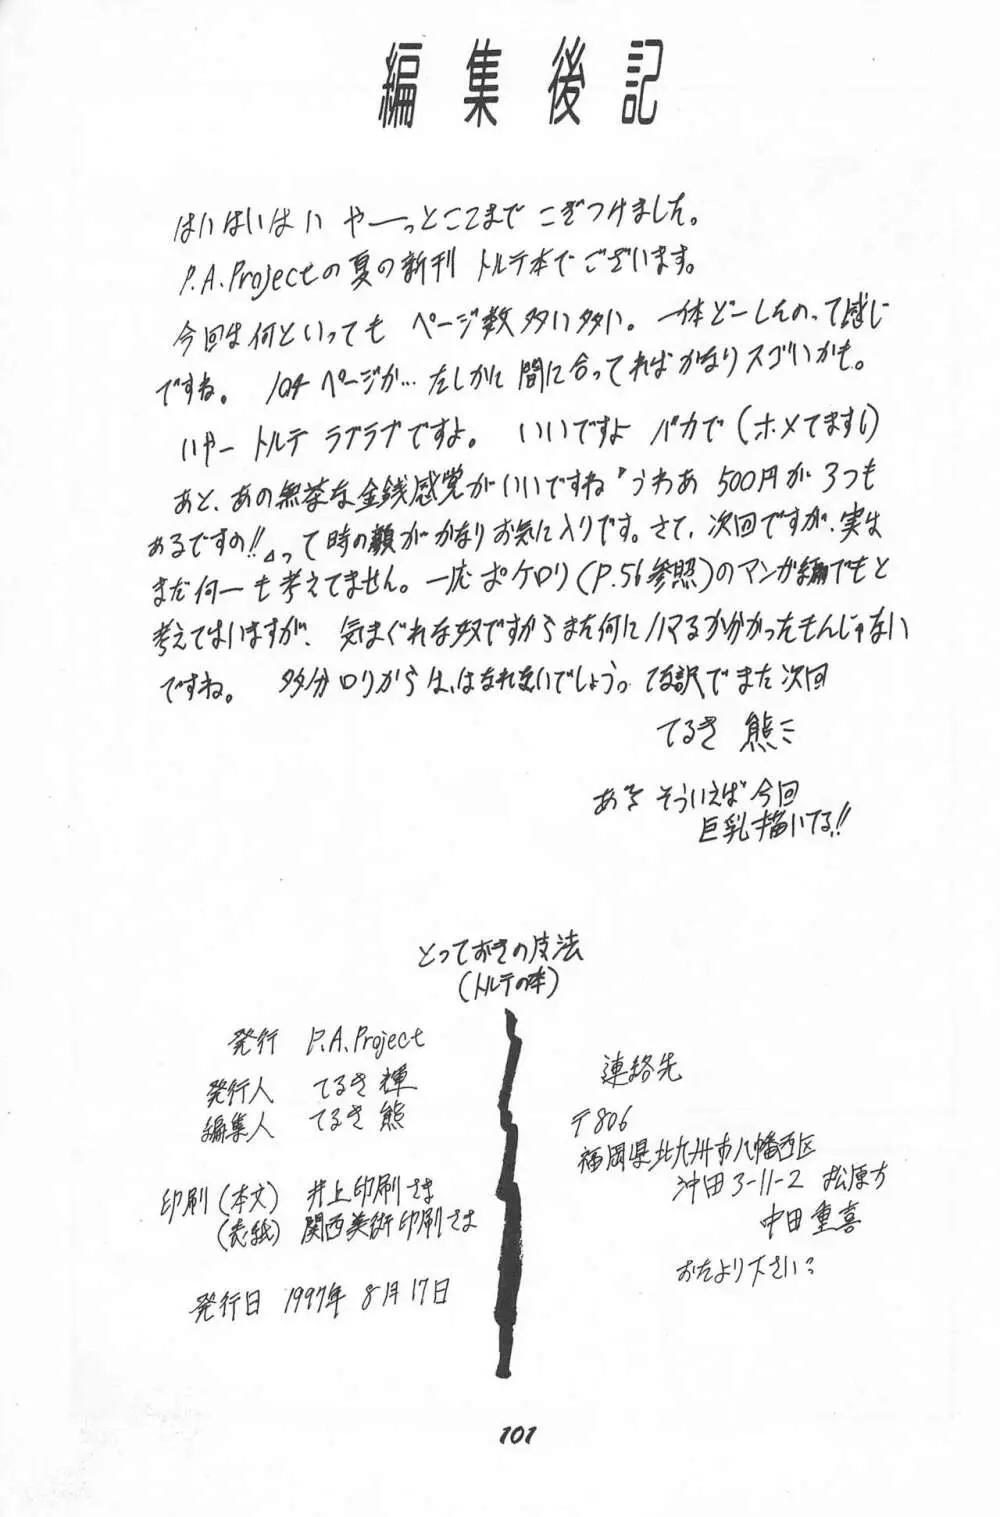 編集後記
はいはいはい やーっとここまで こぎつけました。
P.A.Projectの夏の新刊 トルテ本でございます。
今回は何といっても ページ数多い多い。一体どーしたのって感じ
ですね。 104ページか… たしかに 間に合ってればかなりスゴいかも。
いやー トルテ ラブラブですよ。 いいですよ バカで(ホメてます!)
あと、あの無茶な金銭感覚がいいですね「うわあ 500円が3つも
あるですの!!」って時の顔がかなりお気に入りです。さて、次回ですが、実は
まだ何ーも考えてません。一応ポケロリ(P.56参照)のマンガ編でもと
考えてはいますが、 気まぐれな奴ですからまた何にハマるか分かったもんじゃない
ですね。 多分ロリからは、はなれないでしょうっ て訳でまた次回
てるき 熊ミ
あ、そういえば 今回
巨乳描いてる!!
とっておきの技法
(トルテの本)
発行 P.A.Project
発行人 てるき 輝
編集人 てるき 熊
印刷(本文) 井上印刷さま
(表紙) 関西美術印刷さま
発行日 1997年 8月17日
連絡先
〒806
福岡県北九州市八幡西区
沖田3-11-2 松原方
中田 重喜
おたより下さい?
101